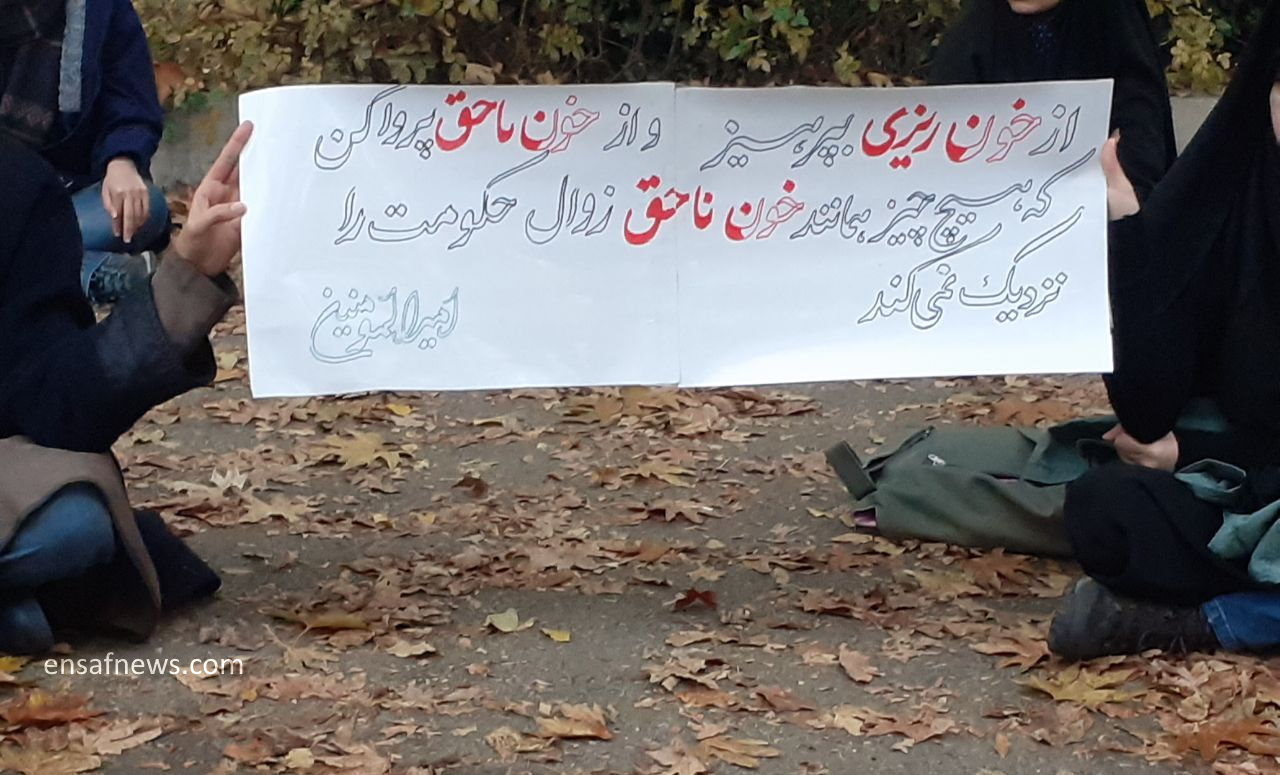 از خون ریزی بپرهیز و از خون ناحق پروا کن
که هیچ چیز همانند خون ناحق زوال حکومت را
نزدیک نمی کند
امیرالمومنین
ensafnews.com